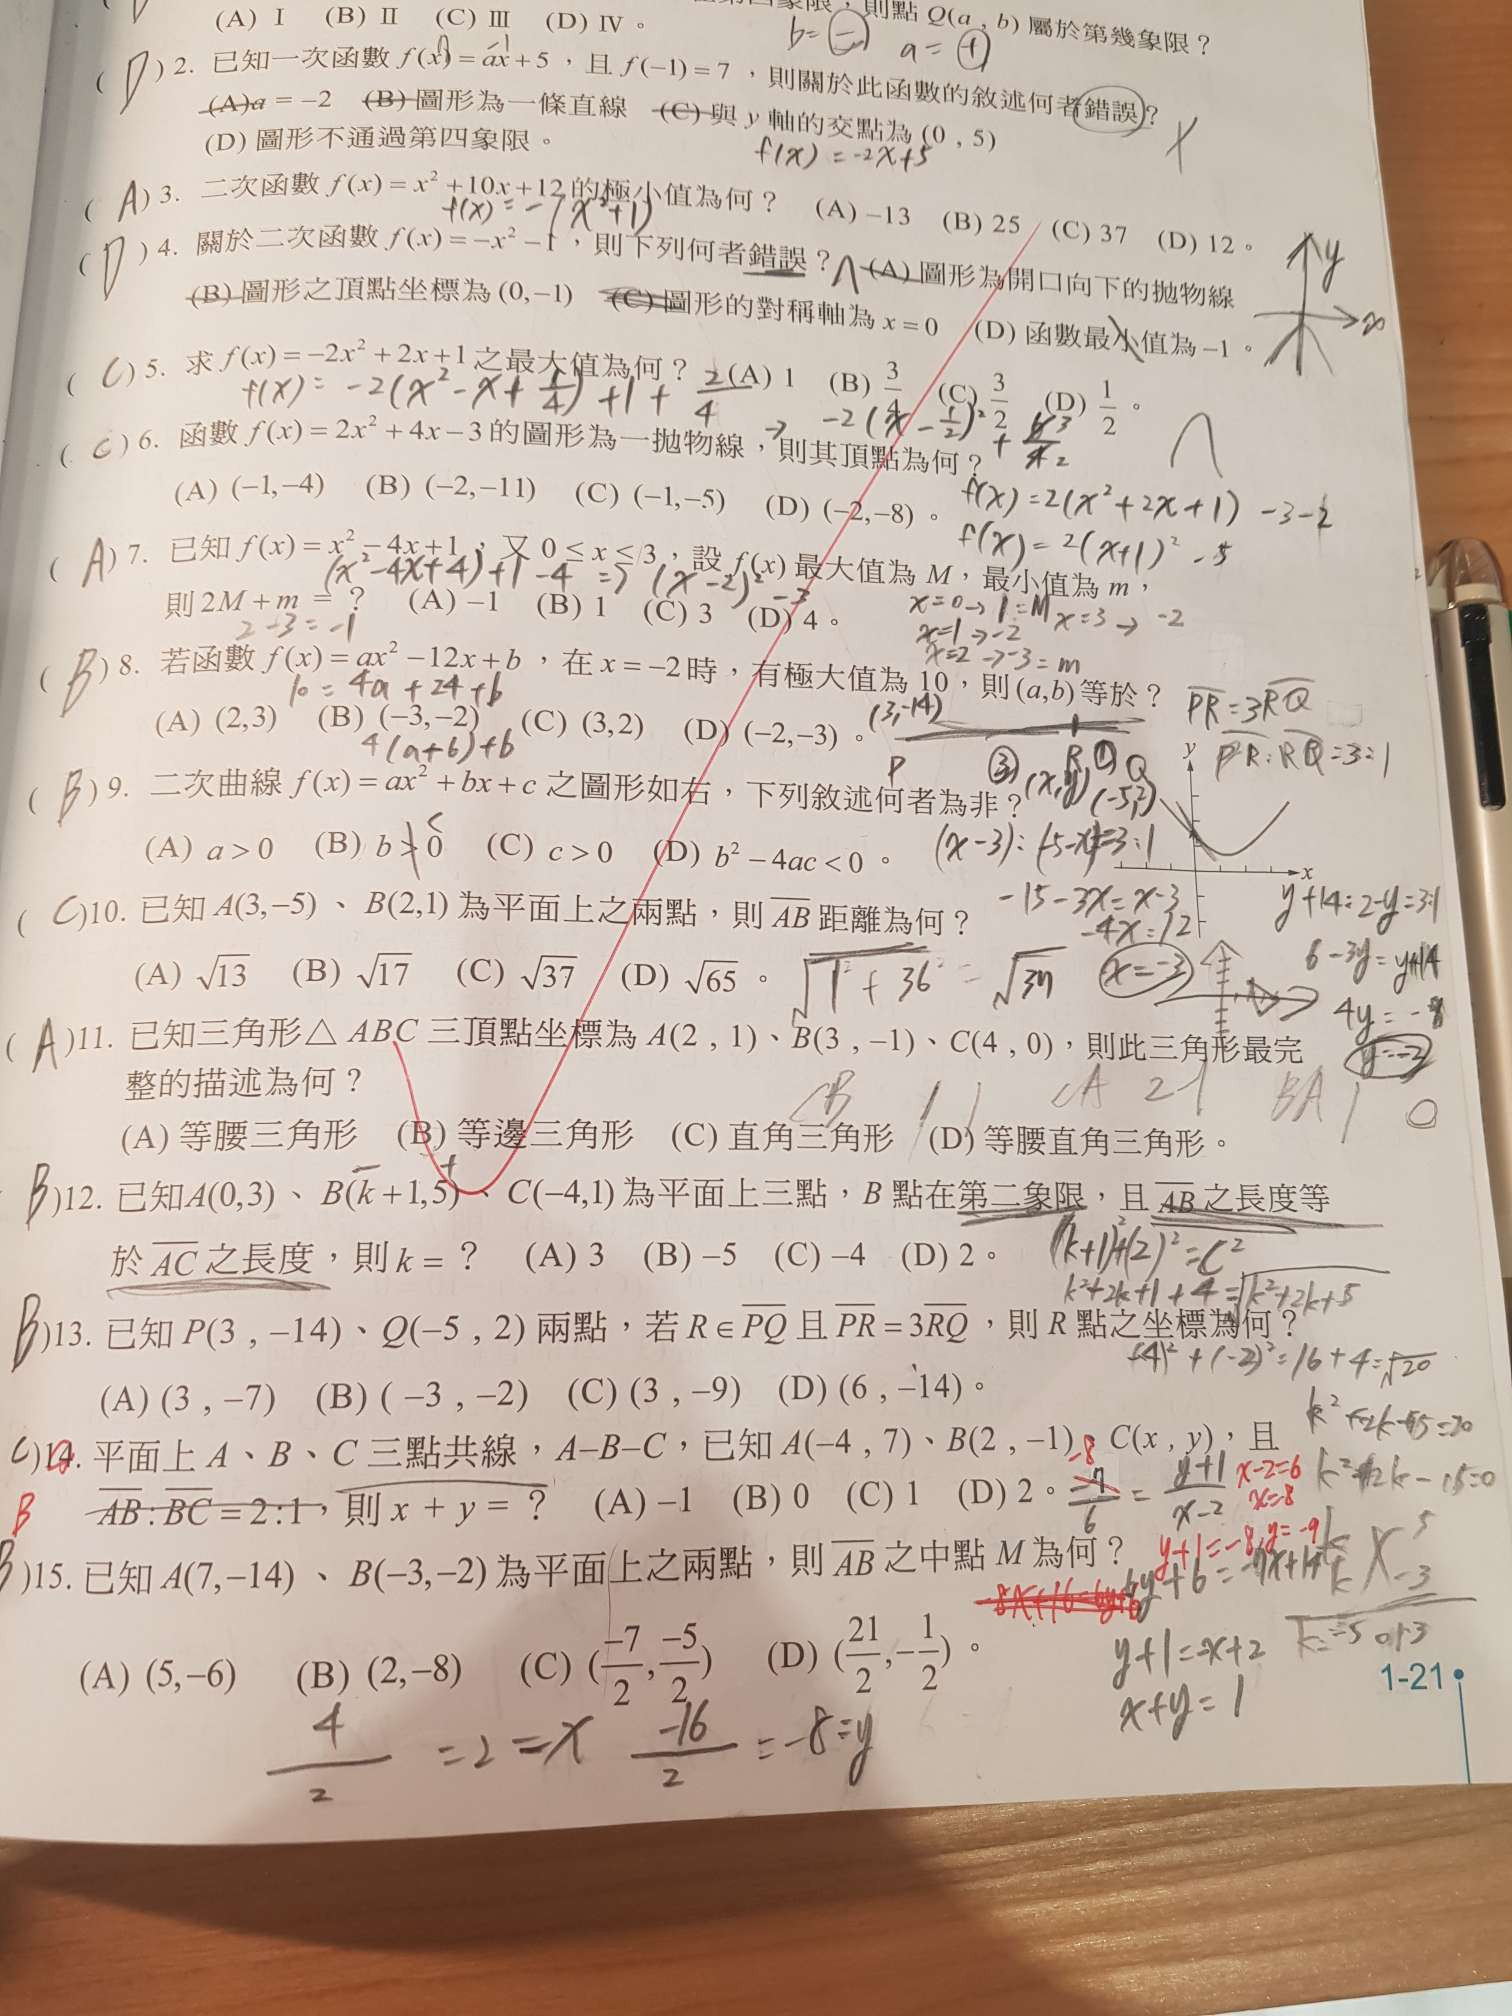 ，則點 Q(a , b) 屬於第幾象限？
(A) I (B) II (C) III (D) IV。
b= (−) a= (+)
( D ) 2. 已知一次函數 f(x) = ax + 5，且 f(−1) = 7，則關於此函數的敘述何者錯誤？
(A) a = −2 (B) 圖形為一條直線 (C) 與 y 軸的交點為 (0 , 5)
(D) 圖形不通過第四象限。
f(x) = -2x+5
( A ) 3. 二次函數 f(x) = x² +10x+12 的極小值為何？ (A) −13 (B) 25 (C) 37 (D) 12。
f(x) = -(x²+1)
( D ) 4. 關於二次函數 f(x) = −x² −1，則下列何者錯誤？ (A) 圖形為開口向下的拋物線
y
x
(B) 圖形之頂點坐標為 (0,−1) (C) 圖形的對稱軸為 x = 0 (D) 函數最小值為 −1。
( C ) 5. 求 f(x) = −2x² + 2x +1 之最大值為何？ (A) 1 (B) 3/4 (C) 3/2 (D) 1/2。
f(x) = -2(x² - x + 1/4) +1 + 2/4
→ -2(x - 1/2)²
( C ) 6. 函數 f(x) = 2x² + 4x − 3 的圖形為一拋物線，則其頂點為何？
(A) (−1,−4) (B) (−2,−11) (C) (−1,−5) (D) (−2,−8)。
f(x) = 2(x²+2x+1) -3-2
f(x) = 2(x+1)² -5
( A ) 7. 已知 f(x) = x² − 4x +1，又 0 ≤ x ≤ 3，設 f(x) 最大值為 M，最小值為 m，
(x²-4x+4)+1-4 ⇒ (x-2)²-3
則 2M + m = ？ (A) −1 (B) 1 (C) 3 (D) 4。
2-3=-1
x=0→1=M x=3→-2
x=1→-2
x=2→-3=m
( B ) 8. 若函數 f(x) = ax² −12x + b，在 x = −2 時，有極大值為 10，則 (a,b) 等於？
10 = 4a + 24 + b
(A) (2,3) (B) (−3,−2) (C) (3,2) (D) (−2,−3)。
4(a+6)+b
(3,-14)
PR=3RQ
PR:RQ=3:1
P ③ R ① Q
(x,y) (-5,2)
( B ) 9. 二次曲線 f(x) = ax² + bx + c 之圖形如右，下列敘述何者為非？
y
x
(A) a > 0 (B) b > 0 (C) c > 0 (D) b² − 4ac < 0。
<
(x-3):(-5-x)=3:1
-15-3x=x-3
-4x=12
x=-3
y+14:2-y=3:1
6-3y=y+14
4y=-8
y=-2
( C )10. 已知 A(3,−5)、B(2,1) 為平面上之兩點，則 AB 距離為何？
(A) √13 (B) √17 (C) √37 (D) √65。
√1²+36 = √37
( A )11. 已知三角形△ ABC 三頂點坐標為 A(2 , 1)、B(3 , −1)、C(4 , 0)，則此三角形最完
整的描述為何？
CB 1 1 CA 2 1 BA 1
(A) 等腰三角形 (B) 等邊三角形 (C) 直角三角形 (D) 等腰直角三角形。
− +
B )12. 已知A(0,3)、B(k +1,5)、C(−4,1) 為平面上三點，B 點在第二象限，且 AB 之長度等
於 AC 之長度，則 k = ？ (A) 3 (B) −5 (C) −4 (D) 2。
(k+1)²+(2)²=C²
k²+2k+1+4=√k²+2k+5
(-4)²+(-2)²=16+4=√20
B )13. 已知 P(3 , −14)、Q(−5 , 2) 兩點，若 R ∈ PQ 且 PR = 3RQ，則 R 點之坐標為何？
(A) (3 , −7) (B) ( −3 , −2) (C) (3 , −9) (D) (6 , −14)。
k²+2k+5=20
k²+2k-15=0
k 5
k -3
k=-5 or 3
C )14. 平面上 A、B、C 三點共線，A−B−C，已知 A(−4 , 7)、B(2 , −1)、C(x , y)，且
B
AB : BC = 2 : 1，則 x + y = ？ (A) −1 (B) 0 (C) 1 (D) 2。
-8
-7/6 = y+1/x-2
x-2=6
x=8
y+1=-8, y=-9
6y+6=-7x+14
y+1=-x+2
x+y=1
B )15. 已知 A(7,−14)、B(−3,−2) 為平面上之兩點，則 AB 之中點 M 為何？
(A) (5,−6) (B) (2,−8) (C) (−7/2, −5/2) (D) (21/2, −1/2)。
4/2 = 2 = x -16/2 = -8 = y
1-21